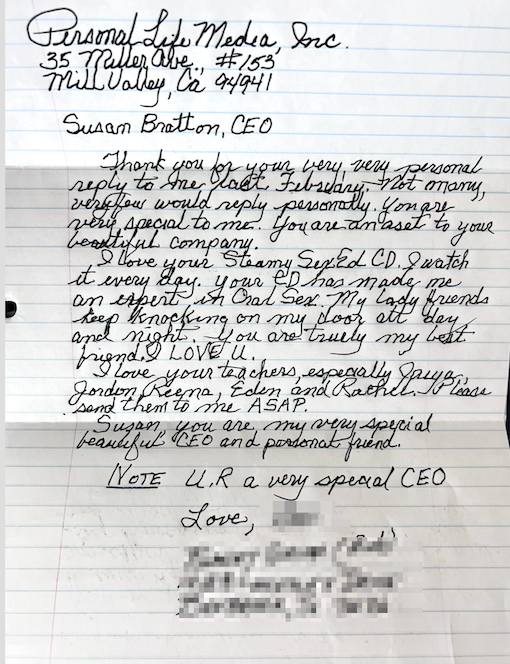 Personal Life Media, Inc.
35 Miller Ave., #153
Mill Valley, Ca 94941
Susan Bratton, CEO
Thank you for your very, very personal
reply to me last February. Not many,
very few would reply personally. You are
very special to me. You are an aset to your
beautiful company.
I love your Steamy Sex Ed CD. I watch
it every day. Your CD has made me
an expert in Oral Sex. My lady friends
keep knocking on my door all day
and night. You are truely my best
friend. I LOVE U.
I love your teachers, especially Jaiya,
Jordon, Reena, Eden and Rachel. Please
send them to me ASAP.
Suzan, you are, my very special
beautiful CEO and personal friend.
NOTE U.R a very special CEO
Love,